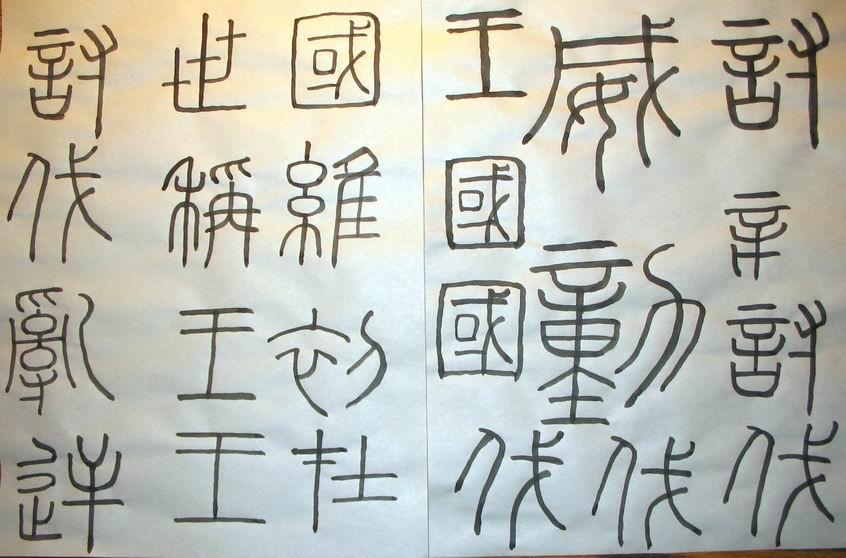 討討伐
威動伐
王國國伐
國維初在
世稱王王
討伐亂逆